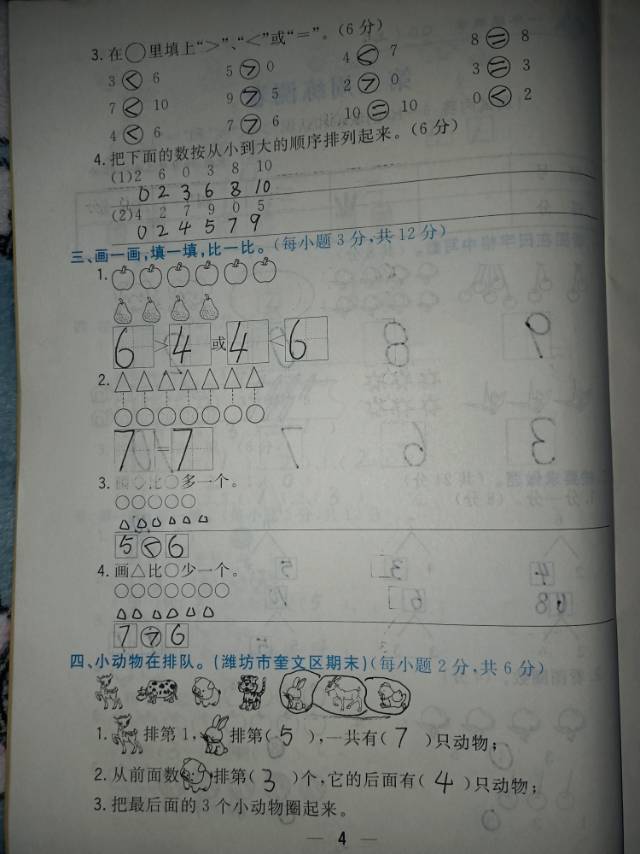 3. 在○里填上“>”、“<”或“=”。(6分)
3 < 6 5 > 0 4 < 7 8 = 8
7 < 10 9 > 5 2 > 0 3 = 3
4 < 6 7 > 6 10 = 10 0 < 2
4. 把下面的数按从小到大的顺序排列起来。(6分)
(1)2 6 0 3 8 10
0 2 3 6 8 10
(2)4 2 7 9 0 5
0 2 4 5 7 9
三、画一画,填一填,比一比。(每小题3分,共12分)
1.
6 > 4 或 4 < 6
2.
7 = 7
3. 画△比○多一个。
5 < 6
4. 画△比○少一个。
7 > 6
四、小动物在排队。(潍坊市奎文区期末)(每小题2分,共6分)
1. 排第1, 排第( 5 ),一共有( 7 )只动物;
2. 从前面数, 排第( 3 )个,它的后面有( 4 )只动物;
3. 把最后面的3个小动物圈起来。
— 4 —